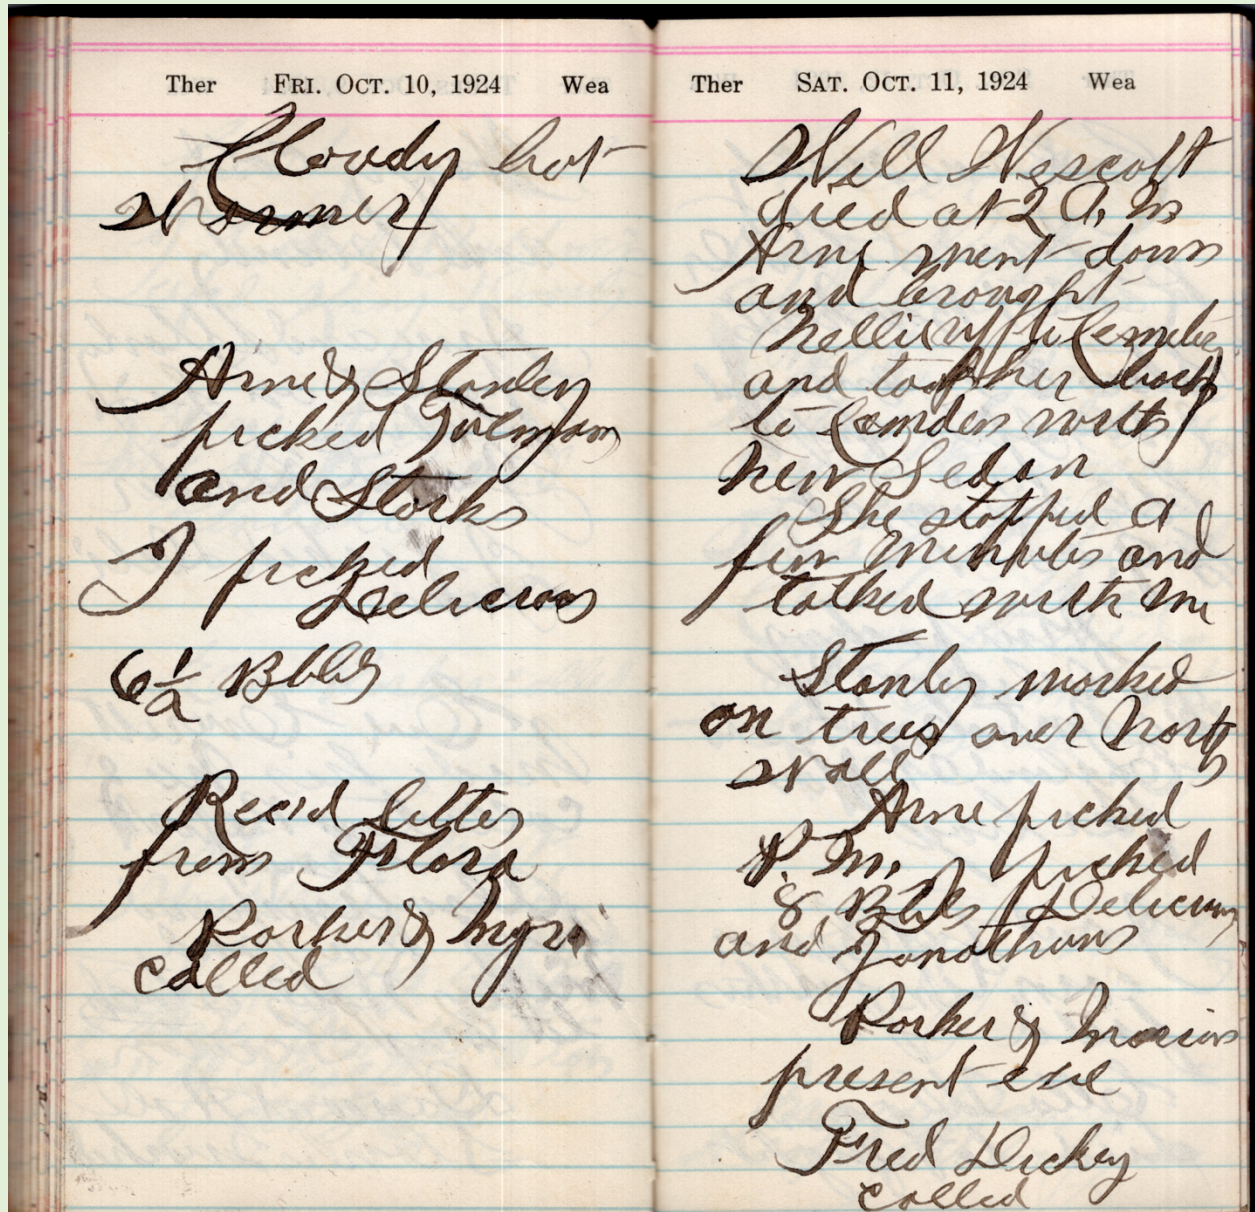 Ther FRI. OCT. 10, 1924 Wea
Cloudy but
Warmer
Arne & Stanley
picked Tolman
and Starks
I picked
Delicious
6 1/2 Bbls
Rec'd letter
from Flora
Parker &
called
Ther SAT. OCT. 11, 1924 Wea
Will Wescott
died at 2 A. M
Arne went down
and brought
Nellie up to
and took her back
to Camden with
new Sedan
She stopped a
few minutes and
talked with me
Stanley worked
on trees over North
wall
Arne picked
P. M. picked
8 Bbls Delicious
and Jonathans
Parker & Marion
present eve
Fred Dickey
called